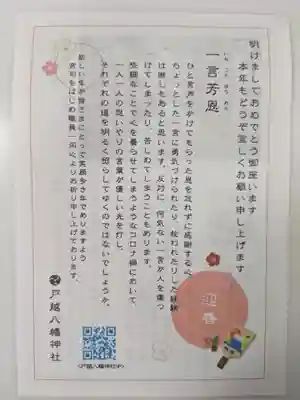 明けましておめでとう御座います
本年もどうぞ宜しくお願い申し上げます
一言芳恩
いち ごん ほう おん
ひと言声をかけてもらった恩を忘れずに感謝する心。
ちょっとした一言に勇気づけられたり、救われたりした経験
は誰しもあると思います。反対に、何気ない一言が人を傷つ
けてしまったり、苦しめてしまうこともあります。
些細なことで心を曇らせてしまうようなコロナ禍において
一人一人の思いやりの言葉が優しい光を灯し、
それぞれの道を明るく照らしてゆくのではないでしょうか。
新しい年が皆さまにとって笑顔多き年でありますよう
宮司をはじめ職員一同心よりお祈り申し上げております。
戸越八幡神社
迎春